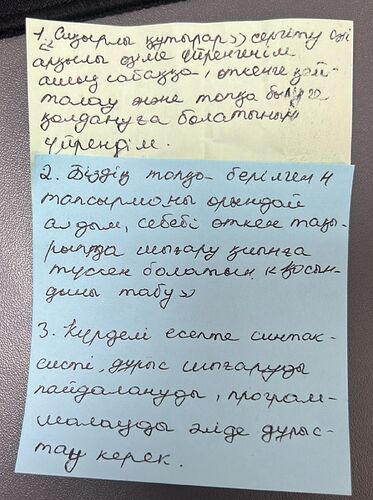 1. «Сиқырлы құтылар» сергіту сәті
арқылы өзіме үйренгенім
ашық сабаққа, өткенге қай-
талау және топқа бөлуге
қолдануға болатынын
үйрендім.
2. Біздің топқа берілген
тапсырманы орындай
алдым, себебі өткен тақы-
рыпта шығару қиынға
түскен болатын «Қосын-
дыны табу»
3. Күрделі есепте синтак-
систі, дұрыс шығаруды
пайдалануды, програм-
малауды әлде дұрыс-
тау керек.